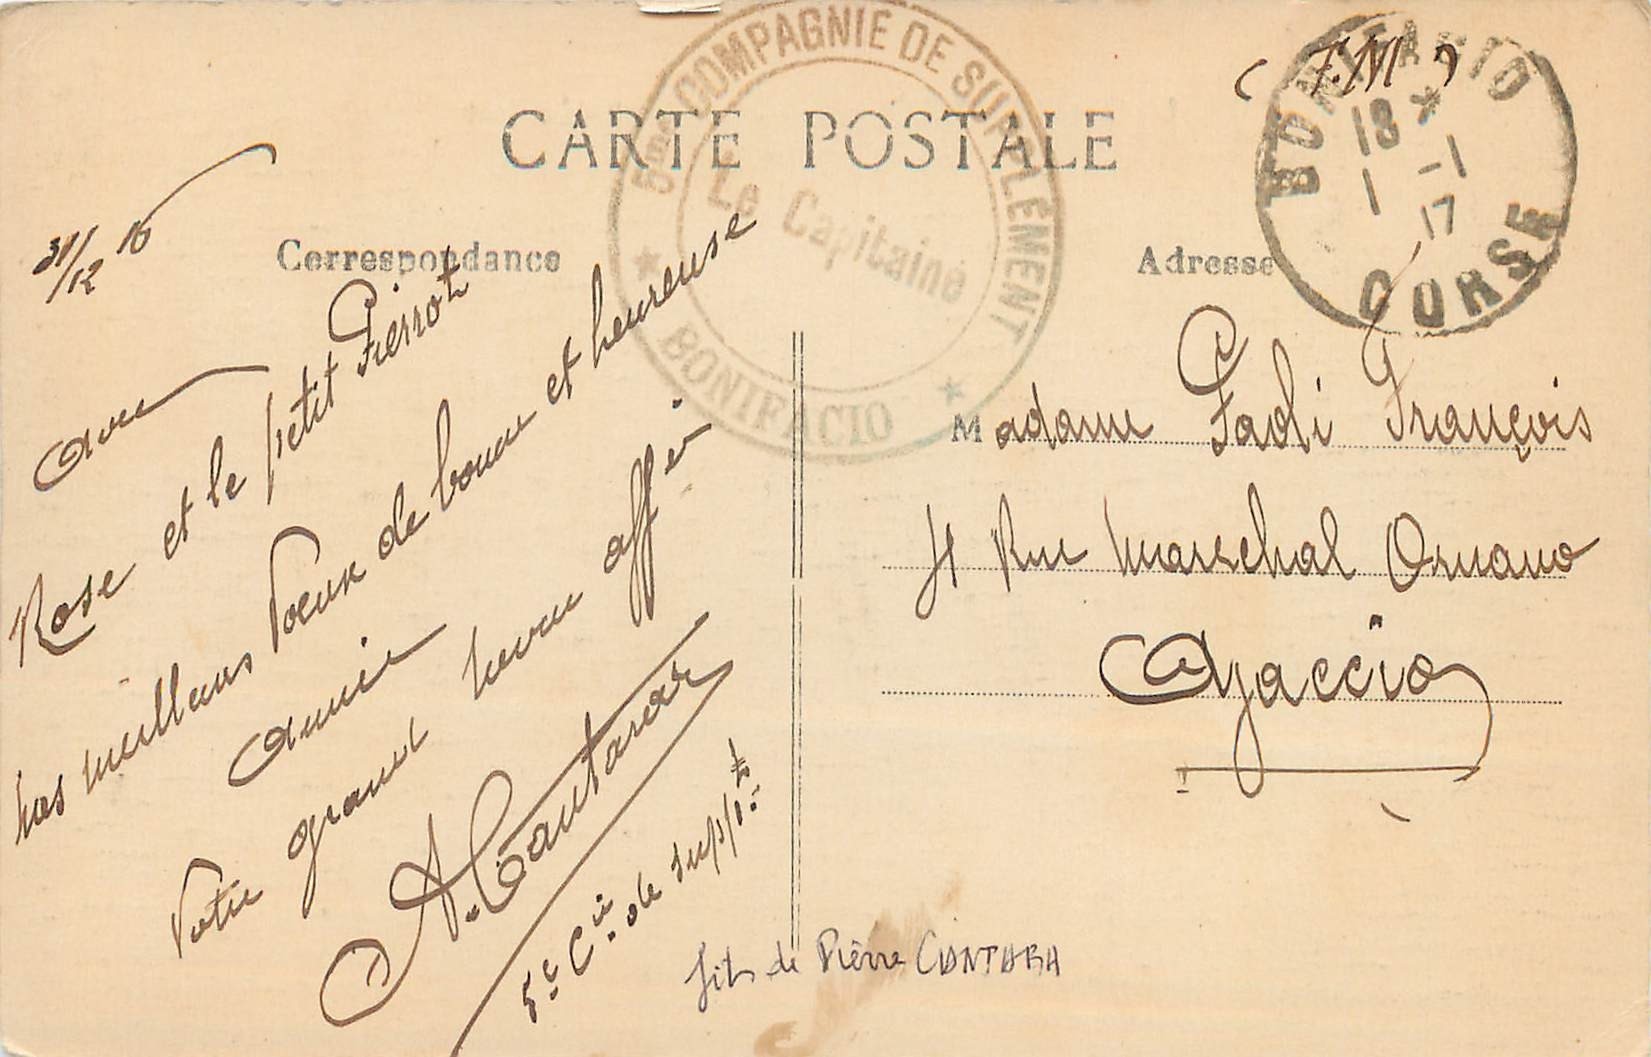 5me COMPAGNIE DE SUPPLÉMENT
Le Capitaine
BONIFACIO
(F.M)
BONIFACIO
18 *
1 -1
17
CORSE
CARTE POSTALE
Correspondance
Adresse
31/12 16
Rose et le petit Pierrot
nos meilleurs Vœux de bonne et heureuse
Année
Votre grand neveu affé
A. Cantara
5e Cie de supplt
Madame Paoli François
4 Rue Marechal Ornano
Ajaccio
fils de Pierre CANTARA